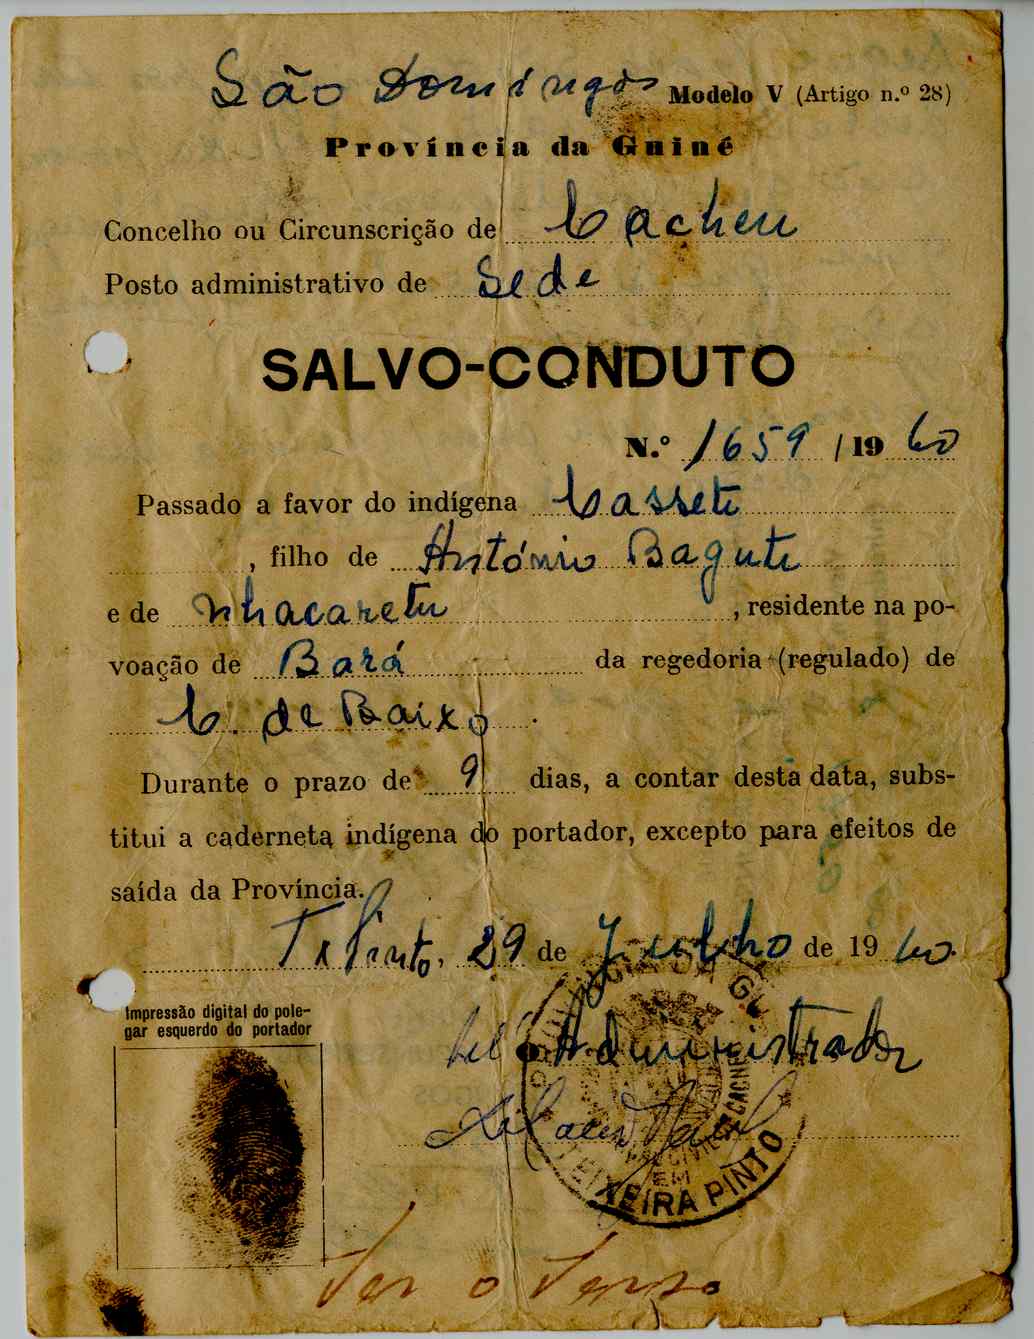 São Domingos Modelo V (Artigo n.º 28)
Província da Guiné
Concelho ou Circunscrição de Cacheu
Posto administrativo de Sede
SALVO-CONDUTO
N.º 1659 / 19 60
Passado a favor do indígena Cassete
, filho de António Bagute
e de Nhacaretu , residente na po-
voação de Bará da regedoria (regulado) de
C. de Baixo .
Durante o prazo de 9 dias, a contar desta data, subs-
titui a caderneta indígena do portador, excepto para efeitos de
saída da Província.
Tx Pinto, 29 de Julho de 19 60.
Impressão digital do pole-
gar esquerdo do portador
Administrador
EM
TEIXEIRA PINTO
Ver o Verso